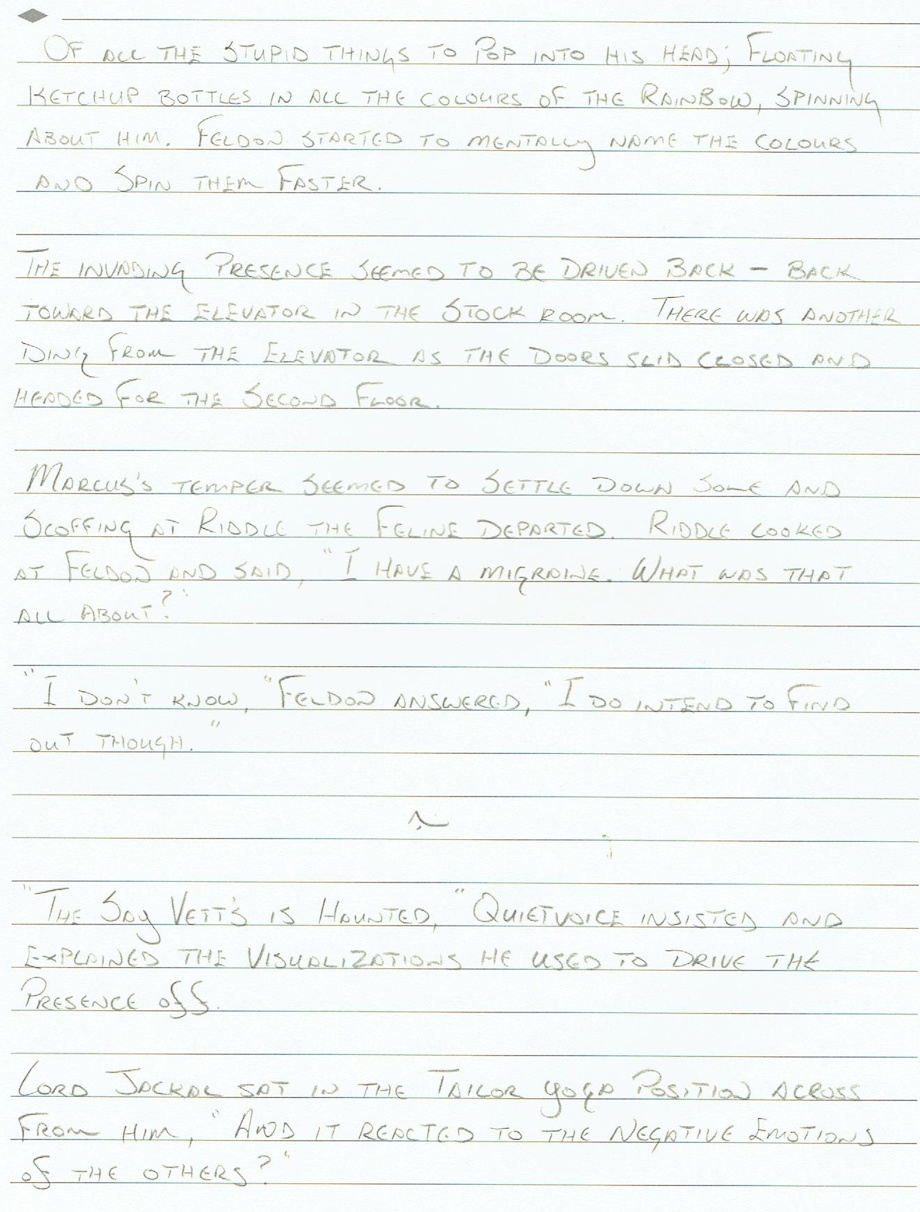 Of all the stupid things to pop into his head; floating
ketchup bottles in all the colours of the rainbow, spinning
about him. Feldon started to mentally name the colours
and spin them faster.
The invading presence seemed to be driven back – back
toward the elevator in the stock room. There was another
ding from the elevator as the doors slid closed and
headed for the second floor.
Marcus's temper seemed to settle down some and
scoffing at Riddle the feline departed. Riddle looked
at Feldon and said, "I have a migraine. What was that
all about?"
"I don't know," Feldon answered, "I do intend to find
out though."
~
"The Say Vett's is haunted," Quietvoice insisted and
explained the visualizations he used to drive the
presence off.
Lord Jackal sat in the tailor yoga position across
from him, "And it reacted to the negative emotions
of the others?"